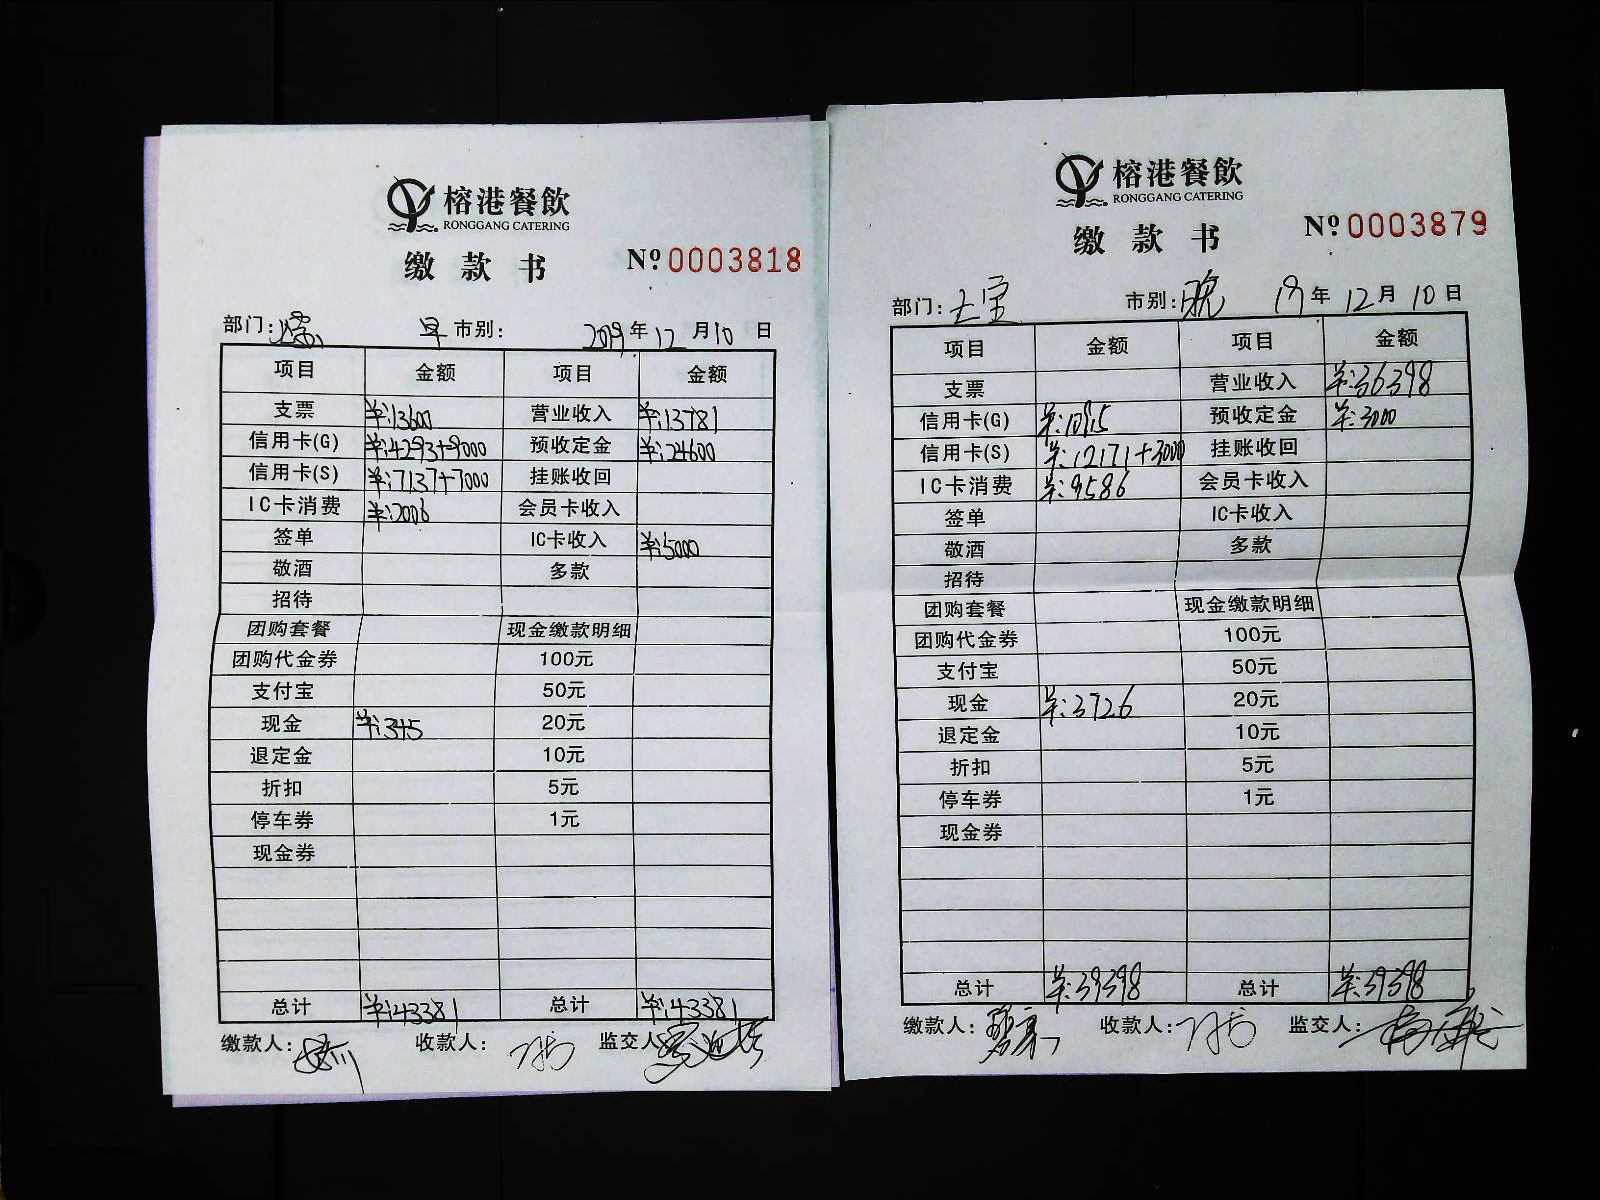 榕港餐飲
RONGGANG CATERING
缴款书
Nº 0003818
部门: 早 市别: 2019年12月10日
项目 金额 项目 金额
支票 ¥:13600 营业收入 ¥:13781
信用卡(G) ¥:4293+9000 预收定金 ¥:24600
信用卡(S) ¥:7137+7000 挂账收回
IC卡消费 ¥:2006 会员卡收入
签单 IC卡收入 ¥:5000
敬酒 多款
招待
团购套餐 现金缴款明细
团购代金券 100元
支付宝 50元
现金 ¥:345 20元
退定金 10元
折扣 5元
停车券 1元
现金券
总计 ¥:43381 总计 ¥:43381
缴款人: 收款人: 监交人:
榕港餐飲
RONGGANG CATERING
缴款书
Nº 0003879
部门: 市别:晚 19年12月10日
项目 金额 项目 金额
支票 营业收入 ¥:36398
信用卡(G) ¥:10915 预收定金 ¥:3000
信用卡(S) ¥:12171+3000 挂账收回
IC卡消费 ¥:9586 会员卡收入
签单 IC卡收入
敬酒 多款
招待
团购套餐 现金缴款明细
团购代金券 100元
支付宝 50元
现金 ¥:3726 20元
退定金 10元
折扣 5元
停车券 1元
现金券
总计 ¥:39398 总计 ¥:39398
缴款人: 收款人: 监交人: